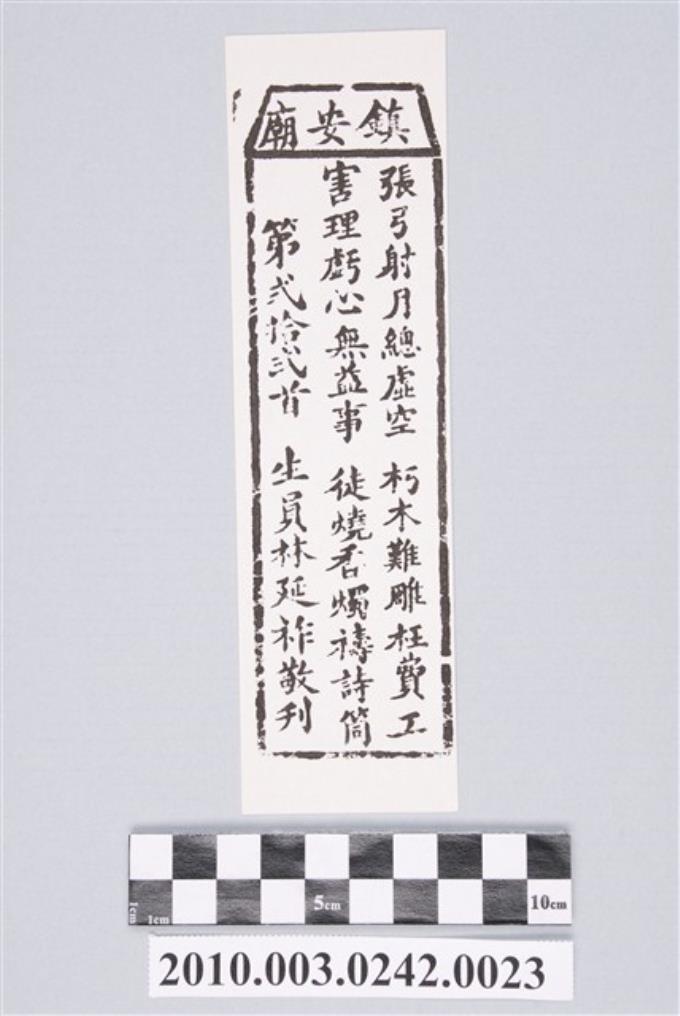 鎮安廟
張弓射月總虛空 朽木難雕枉費工
害理虧心無益事 徒燒香燭禱詩筒
第弍拾弍首 生員林延祚敬刊
1cm 1cm 5cm 10cm
2010.003.0242.0023